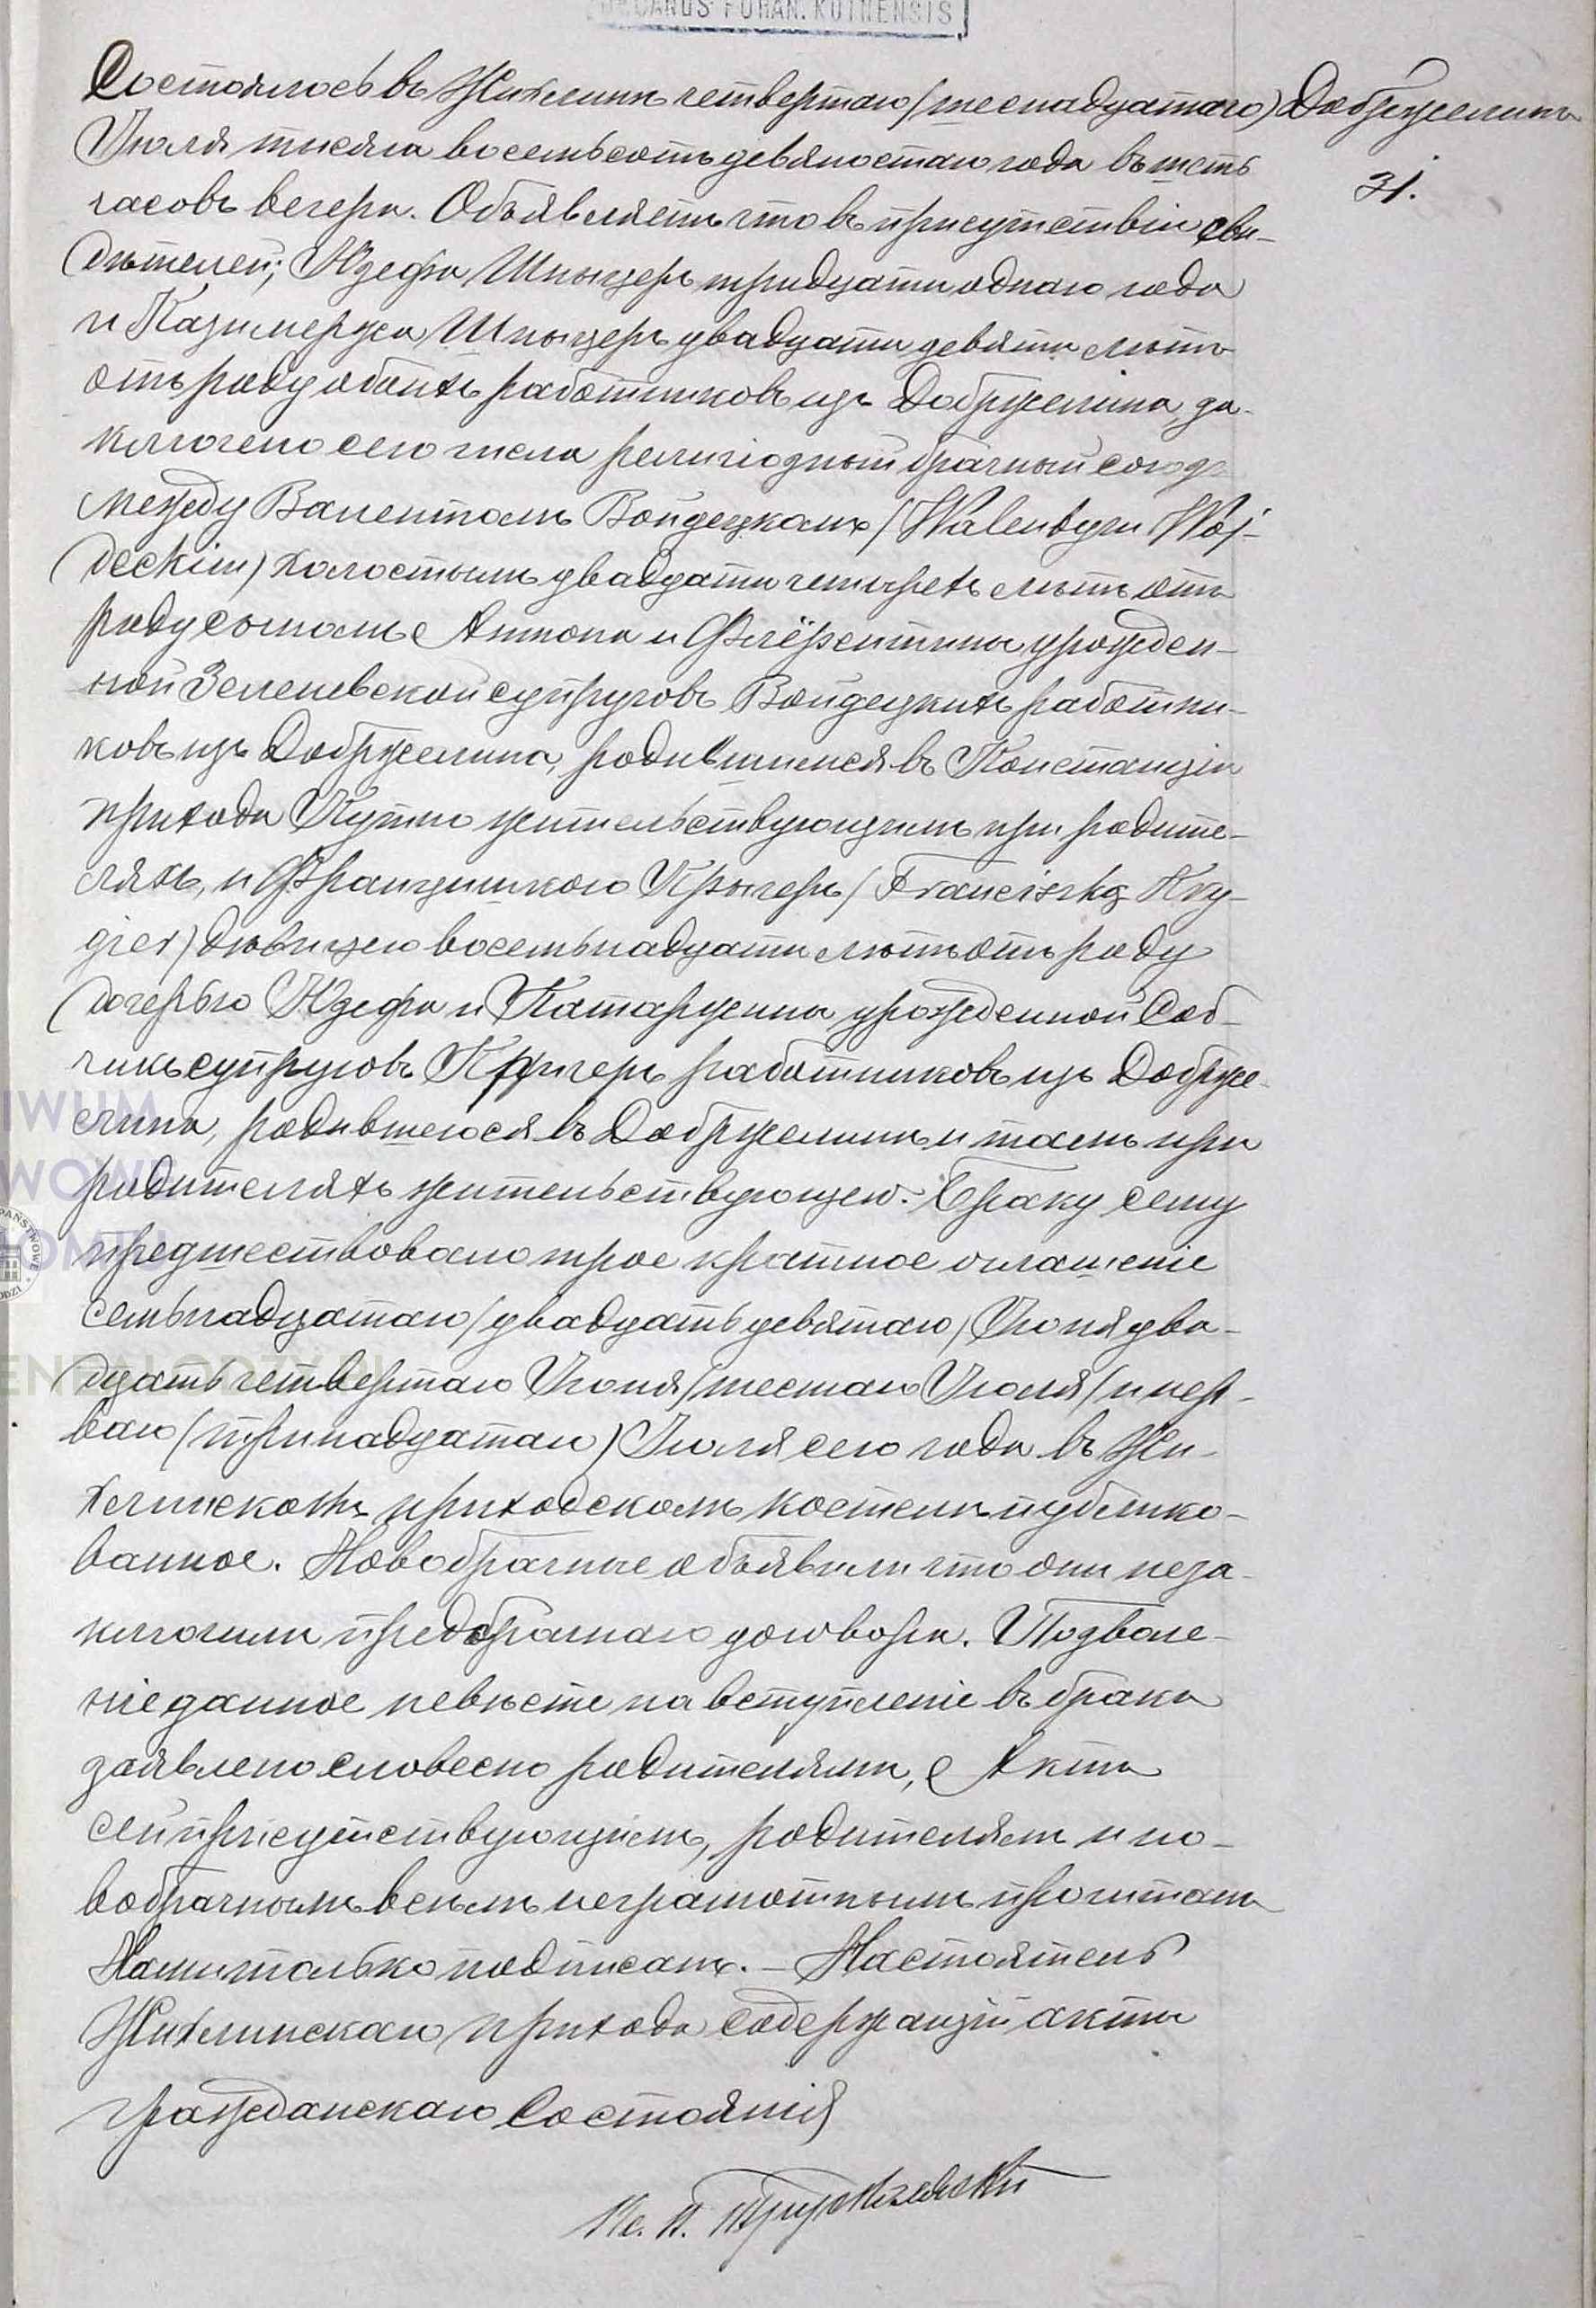 DECANUS FORAN. KUTNENSIS
Состоялось въ Жихлинѣ четвертаго /шеснадцатаго/ Добржелинъ
Іюля тысяча восемьсотъ девяностаго года въ шесть
31.
часовъ вечера. Объявляемъ что въ присутствіи сви-
дѣтелей; Юзефа Шныцеръ тридцати однаго года
и Казимержа Шныцеръ двадцати девяти лѣтъ
отъ роду обоихъ работниковъ изъ Добржелина, за-
ключено сего числа религіозный брачный союзъ
между Валентомъ Войдецкамъ /Walentym Woj-
deckim/ холостымъ двадцати четырехъ лѣтъ отъ
роду сыномъ Антона и Флёрентины урожден-
ной Зелевской супруговъ Войдецкихъ работни-
ковъ изъ Добржелина, родившимся въ Констанціи
прихода Кутно жительствующимъ при родите-
ляхъ, и Францишкою Крыгеръ /Franciszką Kry-
gier/ дѣвицею восемьнадцати лѣтъ отъ роду
дочерью Юзефа и Катаржины урожденной Соб-
чикъ супруговъ Кригеръ работниковъ изъ Добрже-
лина, родившеюся въ Добржелинѣ и тамъ при
родителяхъ жительствующею. Браку сему
предшествовало трое кратное оглашеніе
семьнадцатаго /двадцать девятаго/ Іюня два-
дцать четвертаго Іюня /шестаго Іюля/ и пер-
ваго /тринадцатаго/ Іюля сего года въ Жи-
хлинскомъ приходскомъ костелѣ публико-
ванное. Новобрачные объявили что они неза-
ключили предбрачнаго договора. Позволе-
ніе данное невѣсте на вступленіе въ бракъ
заявлено словесно родителями, Актъ
сей присутствующимъ, родителямъ и но-
вобрачнымъ всѣмъ неграмотнымъ прочитанъ
Нами только подписанъ. — Настоятель
Жихлинскаго прихода содержащій акты
гражданскаго состоянія
Кс. А.